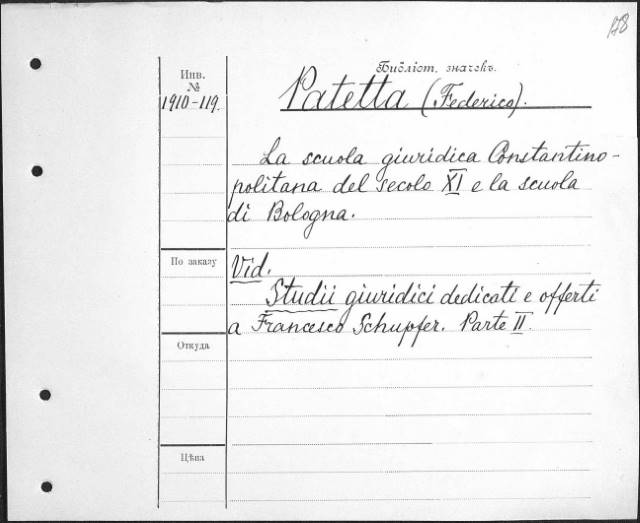 178
Библіот. значекъ.
Инв.
№
1910-119.
Patetta (Federico).
La scuola giuridica Constantino-
politana del secolo XI e la scuola
di Bologna.
По заказу
Vid.
Studii giuridici dedicati e offerti
a Francesco Schupfer. Parte II.
Откуда
Цѣна